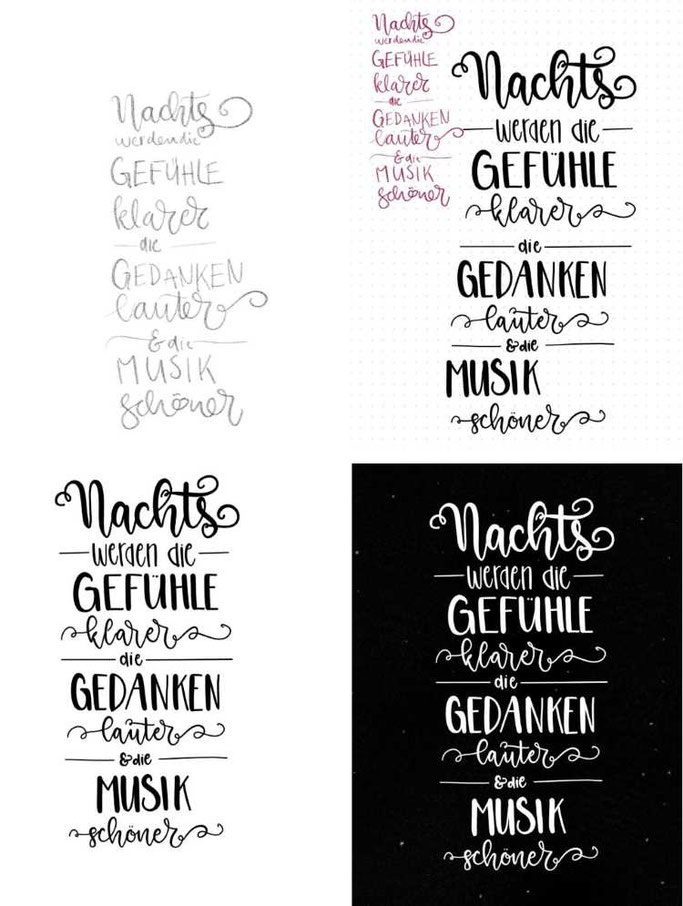 Nachts
werden die
GEFÜHLE
klarer
die
GEDANKEN
lauter
& die
MUSIK
schöner
Nachts
werden die
GEFÜHLE
klarer
die
GEDANKEN
lauter
& die
MUSIK
schöner
Nachts
werden die
GEFÜHLE
klarer
die
GEDANKEN
lauter
& die
MUSIK
schöner
Nachts
werden die
GEFÜHLE
klarer
die
GEDANKEN
lauter
& die
MUSIK
schöner
Nachts
werden die
GEFÜHLE
klarer
die
GEDANKEN
lauter
& die
MUSIK
schöner